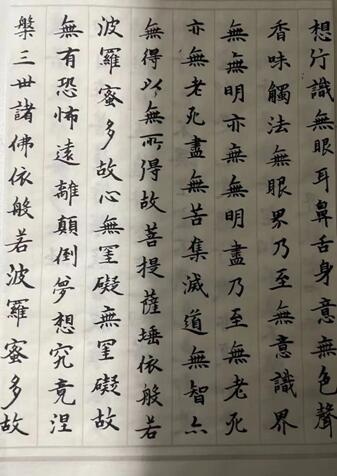 想行識無眼耳鼻舌身意無色聲
香味觸法無眼界乃至無意識界
無無明亦無無明盡乃至無老死
亦無老死盡無苦集滅道無智亦
無得以無所得故菩提薩埵依般若
波羅蜜多故心無罣礙無罣礙故
無有恐怖遠離顛倒夢想究竟涅
槃三世諸佛依般若波羅蜜多故